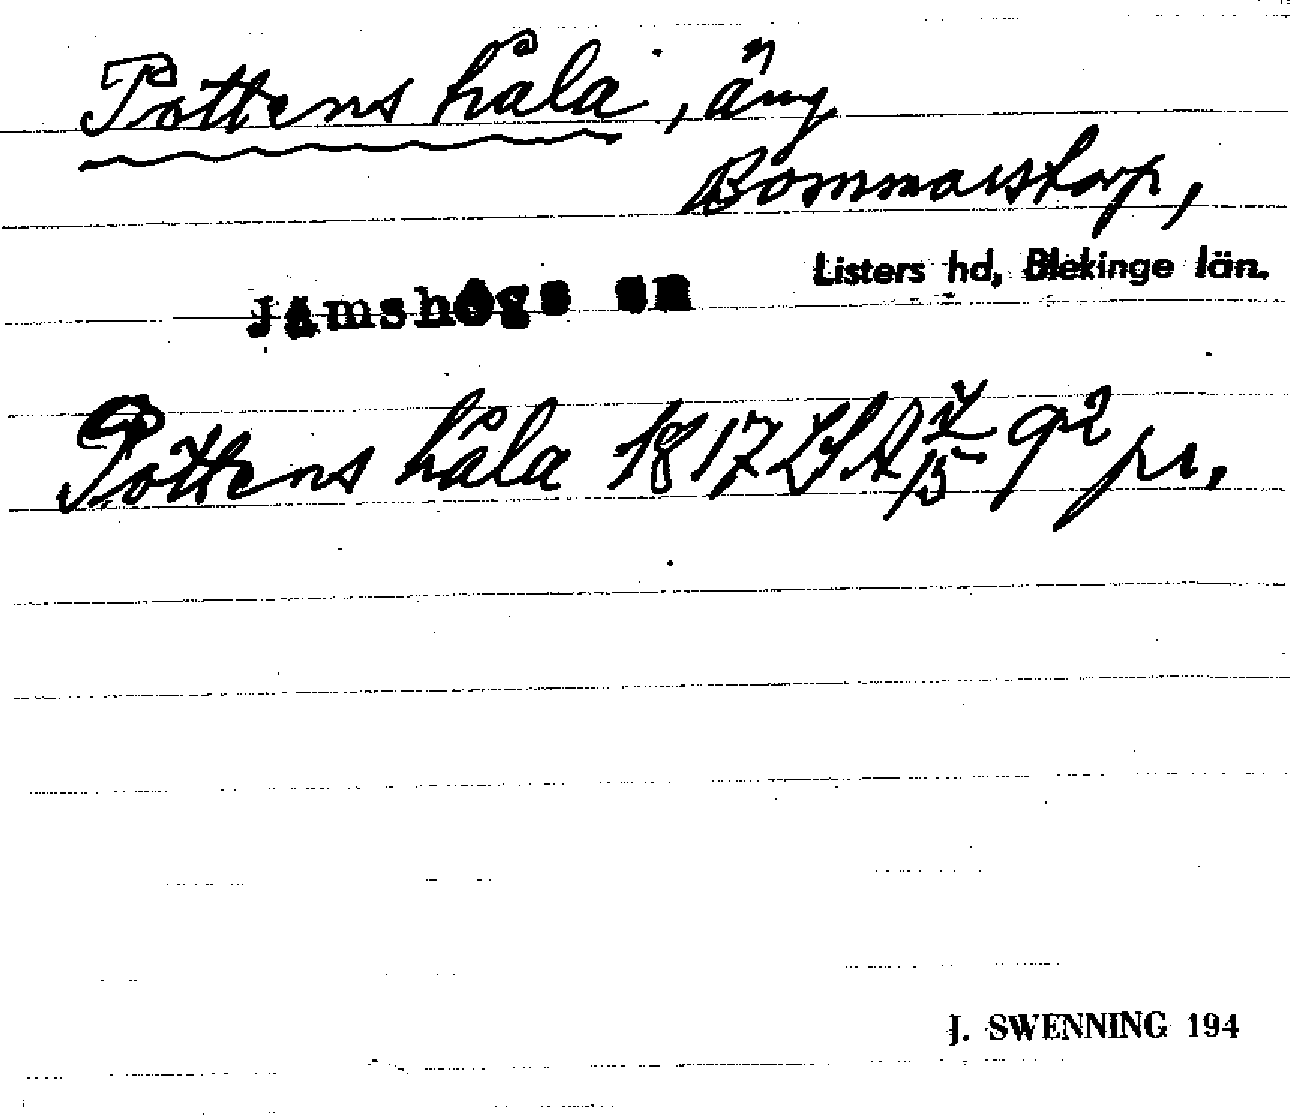 Pottens håla, äng
Bommarstorp,
Listers hd, Blekinge län.
Jämshögs sn
Pottens håla 1817 LSA 4/15 92 pr.
J. SWENNING 194